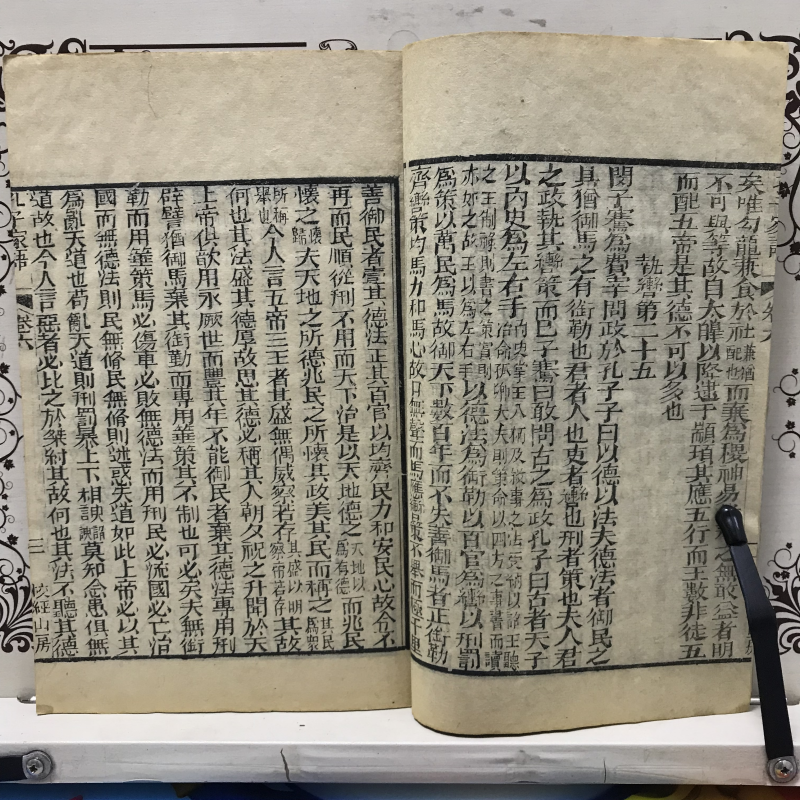 矣唯勾龍兼食於社兼猶配也而棄為稷神易之無敢益者明
不可與等故自太皥以降逮于顓頊其應五行而王數非徒五
而配五帝是其德不可以多也
執轡第二十五
閔子騫為費宰問政於孔子子曰以德以法夫德法者御民之
具猶御馬之有銜勒也君者人也吏者轡也刑者策也夫人君
之政執其轡策而已子騫曰敢問古之為政孔子曰古者天子
以內史為左右手內史掌王八柄及敘事之法受納以詔王聽治命孤卿大夫則策命以四方之事書而讀
之王制祿則書之策賞則亦如之故王以為左右手以德法為銜勒以百官為轡以刑罰
為策以萬民為馬故御天下數百年而不失善御馬者正銜勒
齊轡策均馬力和馬心故口無聲而馬應轡策不舉而極千里
善御民者壹其德法正其百官以均齊民力和安民心故令不
再而民順從刑不用而天下治是以天地德之天地以為有德而兆民
懷之懷歸夫天地之所德兆民之所懷其政美其民而稱之其民為衆
所稱舉也今人言五帝三王者其盛無偶威察若存其盛以明察常若存其故
何也其法盛其德厚故思其德必稱其人朝夕祝之升聞於天
上帝俱歆用永厥世而豐其年不能御民者棄其德法專用刑
辟譬猶御馬棄其銜勒而專用箠策其不制也可必矣夫無銜
勒而用箠策馬必傷車必敗無德法而用刑民必流國必亡治
國而無德法則民無脩民無脩則迷惑失道如此上帝必以其
為亂天道也苟亂天道則刑罰暴上下相諛莫知念患俱無
道故也今人言惡者必比之於桀紂其故何也其法不聽其德
孔子家語 卷六 三 校經山房